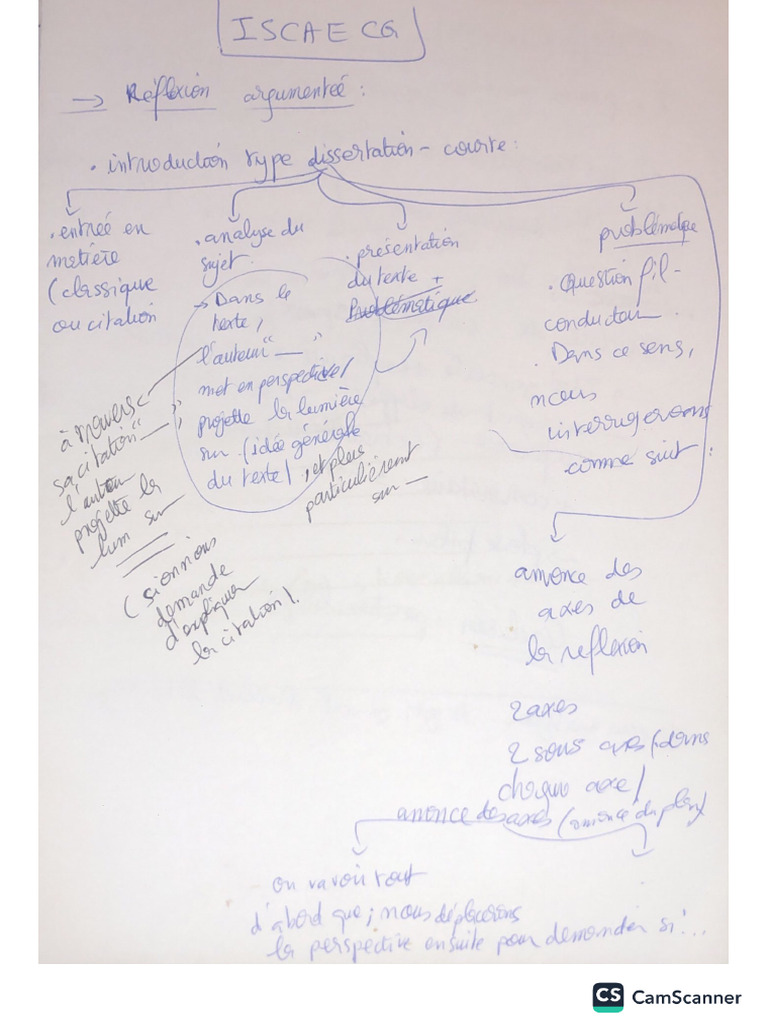 ISCAE CG
→ Réflexion argumenteé :
. introduction type dissertation - courte :
. entrée en
metière
(classique
ou citation
. analyse du
sujet.
→ Dans le
texte,
l'auteur "—"
met en perspective/
projette la lumière
sur (idée générale
du texte), et plus
particulièrement
sur —
à travers
sa citation "—",
l'auteur
projette la
lum sur
(si on nous
demande
d'expliquer
la citation).
. présentation
du texte +
Problématique
problématique
. Question fil-
conducteur.
. Dans ce sens,
nous
interrogerons
comme suit :
annonce des
axes de
la reflexion
2 axes
2 sous axes (dans
chaque axe)
annonce des axes (annonce du plan)
on va voir tout
d'abord que ; nous déplacerons
la perspective ensuite pour demander si...
CS CamScanner